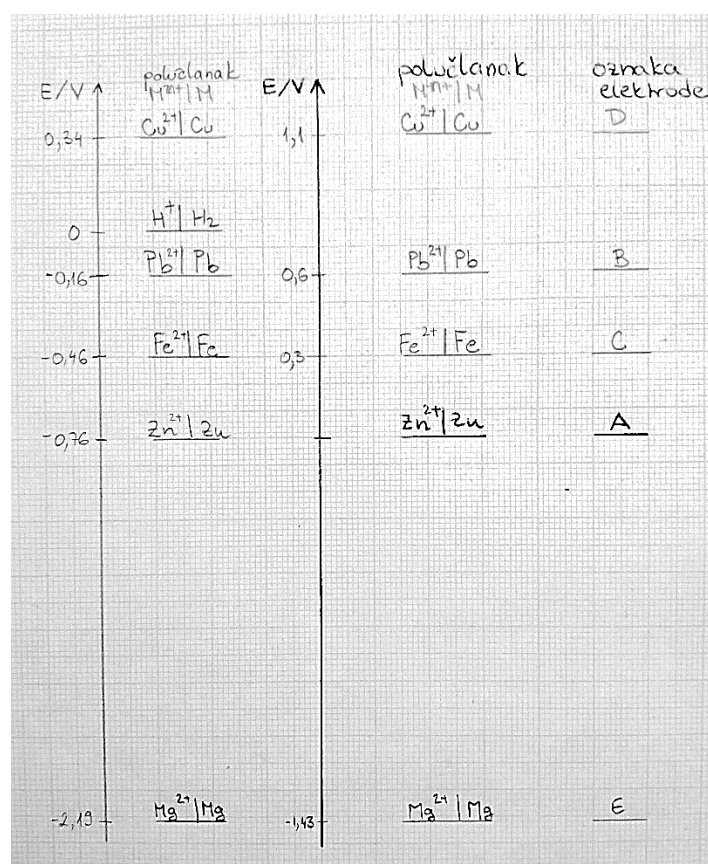 E/V polučlanak Mⁿ⁺|M
0,34 Cu²⁺|Cu
0 H⁺|H₂
-0,16 Pb²⁺|Pb
-0,46 Fe²⁺|Fe
-0,76 Zn²⁺|Zn
-2,19 Mg²⁺|Mg
E/V polučlanak Mⁿ⁺|M oznaka elektrode
1,1 Cu²⁺|Cu D
0,6 Pb²⁺|Pb B
0,3 Fe²⁺|Fe C
Zn²⁺|Zn A
-1,43 Mg²⁺|Mg E